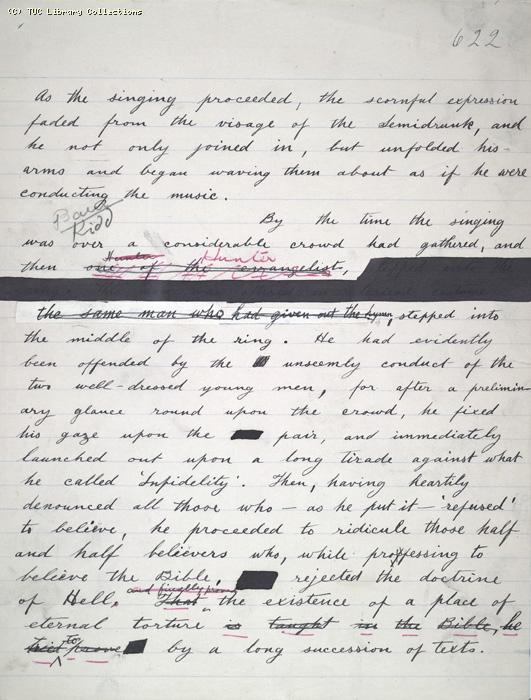 (C) TUC Library Collections
622
As the singing proceeded, the scornful expression
faded from the visage of the Semidrunk, and
he not only joined in, but unfolded his
arms and began waving them about as if he were
conducting the music.
Kidd
By the time the singing
was over a considerable crowd had gathered, and
Hunter Hunter
then one of the evangelists,
the same man who had given out the hymn, stepped into
the middle of the ring. He had evidently
been offended by the unseemly conduct of the
two well-dressed young men, for after a prelimin-
ary glance round upon the crowd, he fixed
his gaze upon the pair, and immediately
launched out upon a long tirade against what
he called 'Infidelity'. Then, having heartily
denounced all those who — as he put it — 'refused'
to believe, he proceeded to ridicule those half
and half believers who, while professing to
believe the Bible, rejected the doctrine
and finally proved
of Hell. That the existence of a place of
eternal torture is taught in the Bible, he
to
tried prove by a long succession of texts.